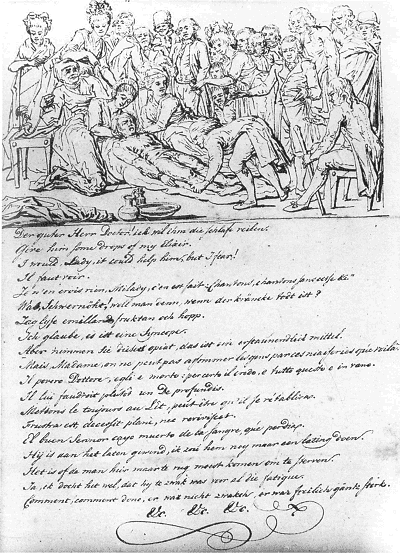 Der guter Herr Doctor! ick wil ihm die schlafe reiben.
Give him some drops of my Elixir.
I would, Lady, it could help him, but I fear!
Il faut voir.
Je n'en crois rien, Milady, c'en est fait: chantons, chantons sans
Was, Schwernoht! will man wenn, wenn der kräncke todt ist?
och hopp.
Ich glaube, es ist eine Syncope.
Aber nimmen Sie dieses opiat, das ist ein erstaunendlich mittel.
Mais, Madame, on ne peut pas assommer les gens par ces
Il povero Dottore, egli è morto: per certo il credo, e tutto questo è in vano.
Il lui faudroit plutôt un De profundis.
Mettons le toujours au Lit, peut être qu'il se rétablira.
Frustra est, decessit plani, nec reviviscet.
El buen Sennor cayo muerto de la sangre, que perdio.
Hy is aan het laten gewend, ik zou hem noy maar een lating doen.
Het is of de man hier maar te rug moest komen om te sterven.
Ja, ik docht het wel, dat hy te zwak was voor al die fatigue.
Comment, comment donc, er war nicht zwach, er war freilich gänk stark.
&c. &c. &c.